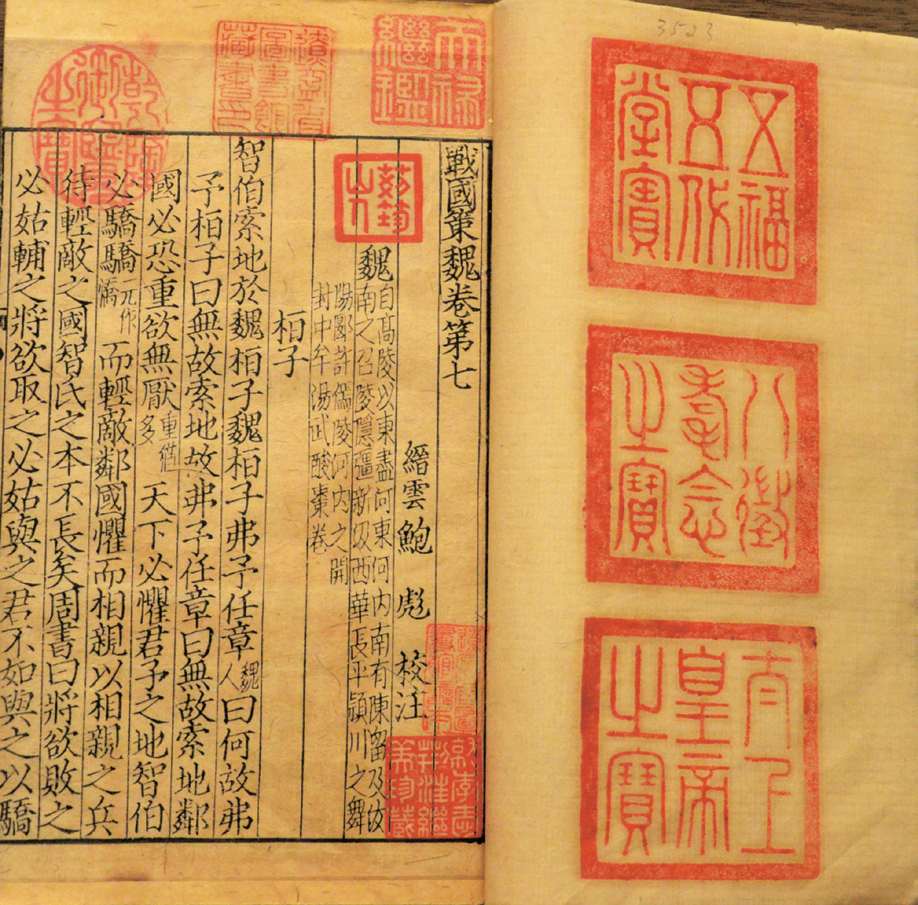 3523
五福
五代
堂寶
八徵
耄念
之寶
太上
皇帝
之寶
天祿
繼鑑
乾隆
御覽
之寶
戰國策魏卷第七
縉雲鮑 彪 校注
魏自高陵以東盡河東河內南有陳留及汝
南之召陵㶏彊新汲西華長平潁川之舞
陽郾許傿陵河內之開
封中牟陽武酸棗卷
桓子
智伯索地於魏桓子魏桓子弗予任章魏人曰何故弗
予桓子曰無故索地故弗予任章曰無故索地鄰
國必恐重欲無厭重猶多天下必懼君予之地智伯
必驕驕元作憍而輕敵鄰國懼而相親以相親之兵
待輕敵之國智氏之本不長矣周書曰將欲敗之
必姑輔之將欲取之必姑與之君不如與之以驕